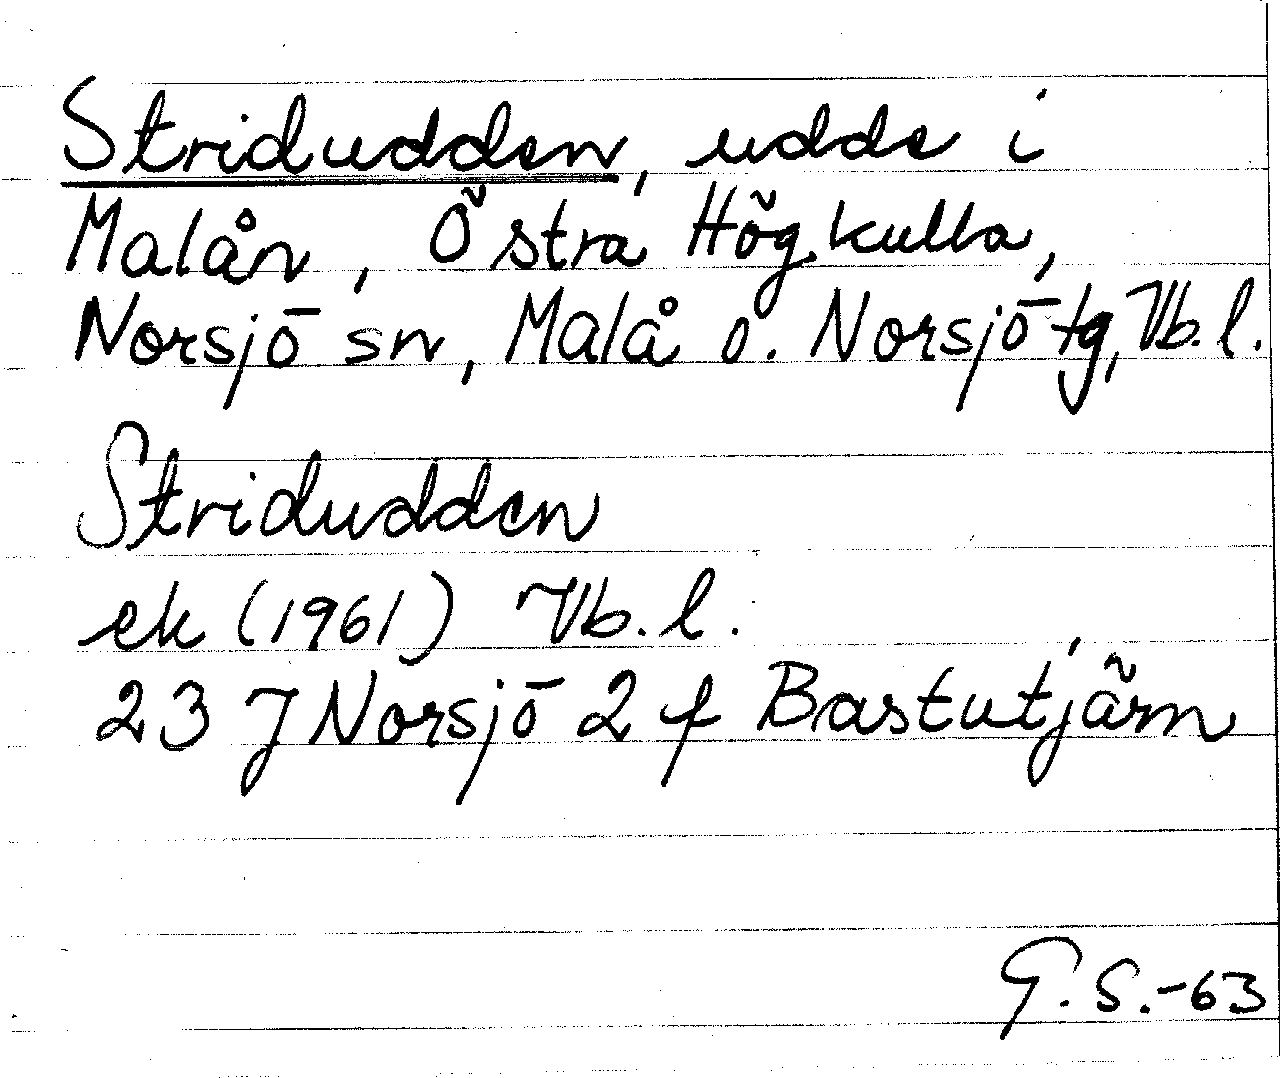 Stridudden, udde i
Malån, Östra Högkulla,
Norsjö sn, Malå o. Norsjö tg, Vb. l.
Stridudden
ek (1961) Vb. l.
23 J Norsjö 2 f Bastutjärn
G. S.-63